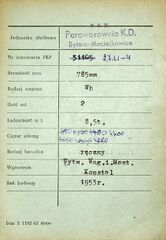 P.K.P.
Jednostka służbowa Parowozownia K.D.
Bytom-Maciejkowice
Nr inwentarza PKP
Szerokość toru 785mm
Rodzaj wagonu Wh
Ilość osi 2
Ładowność w t. 2,5t.
Ciężar własny
Rodzaj hamulca ręczny
Wytwórnia Bytw. Wag. i Most.
Konstal
Rok budowy 1953r.